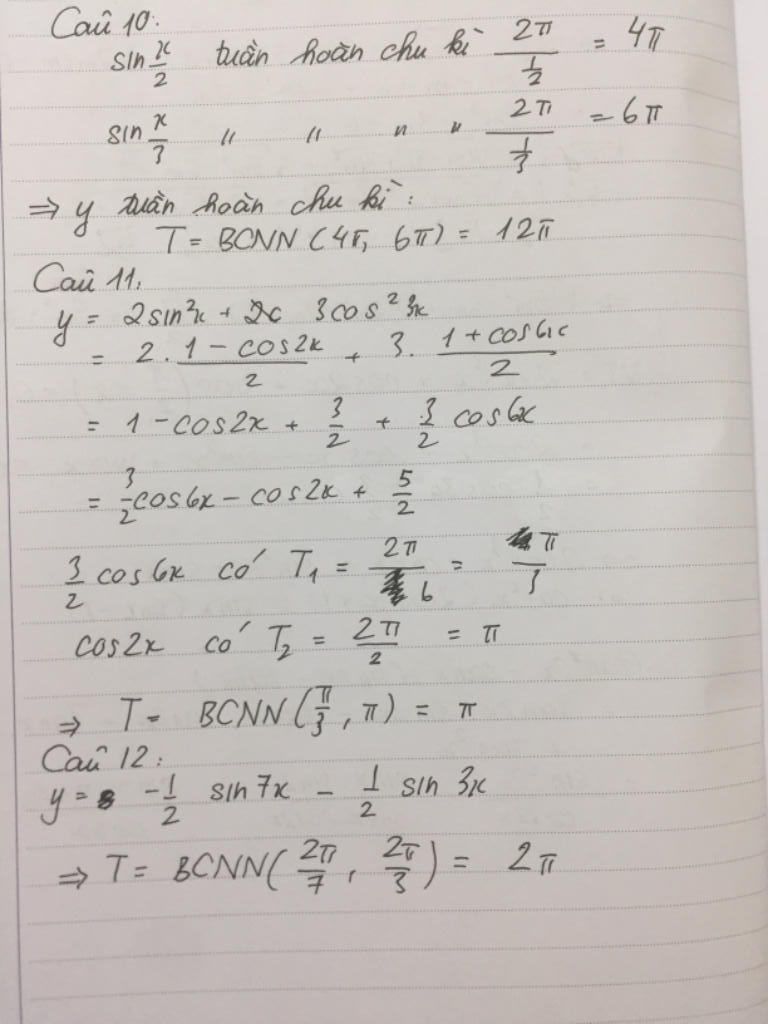 Câu 10:
sin x/2 tuần hoàn chu kì 2π/(1/2) = 4π
sin x/3 " " " " 2π/(1/3) = 6π
⇒ y tuần hoàn chu kì:
T = BCNN (4π, 6π) = 12π
Câu 11:
y = 2sin²x + 3cos²3x
= 2 . (1 - cos2x)/2 + 3 . (1 + cos6x)/2
= 1 - cos2x + 3/2 + 3/2 cos6x
= 3/2 cos6x - cos2x + 5/2
3/2 cos6x có T₁ = 2π/6 = π/3
cos2x có T₂ = 2π/2 = π
⇒ T = BCNN (π/3, π) = π
Câu 12:
y = -1/2 sin7x - 1/2 sin 3x
⇒ T = BCNN (2π/7, 2π/3) = 2π